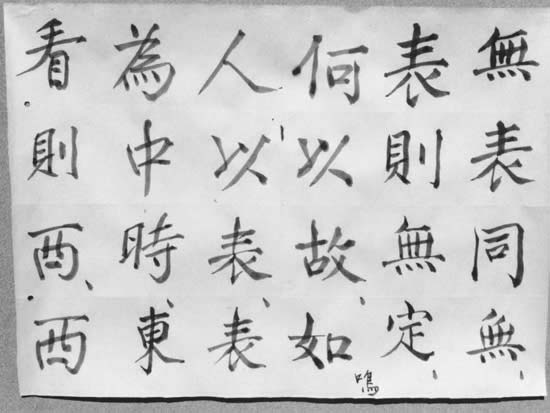 無表同無、
表則無定、
何以故、如
人以表、表
為中時、東
看則西、西
鳴